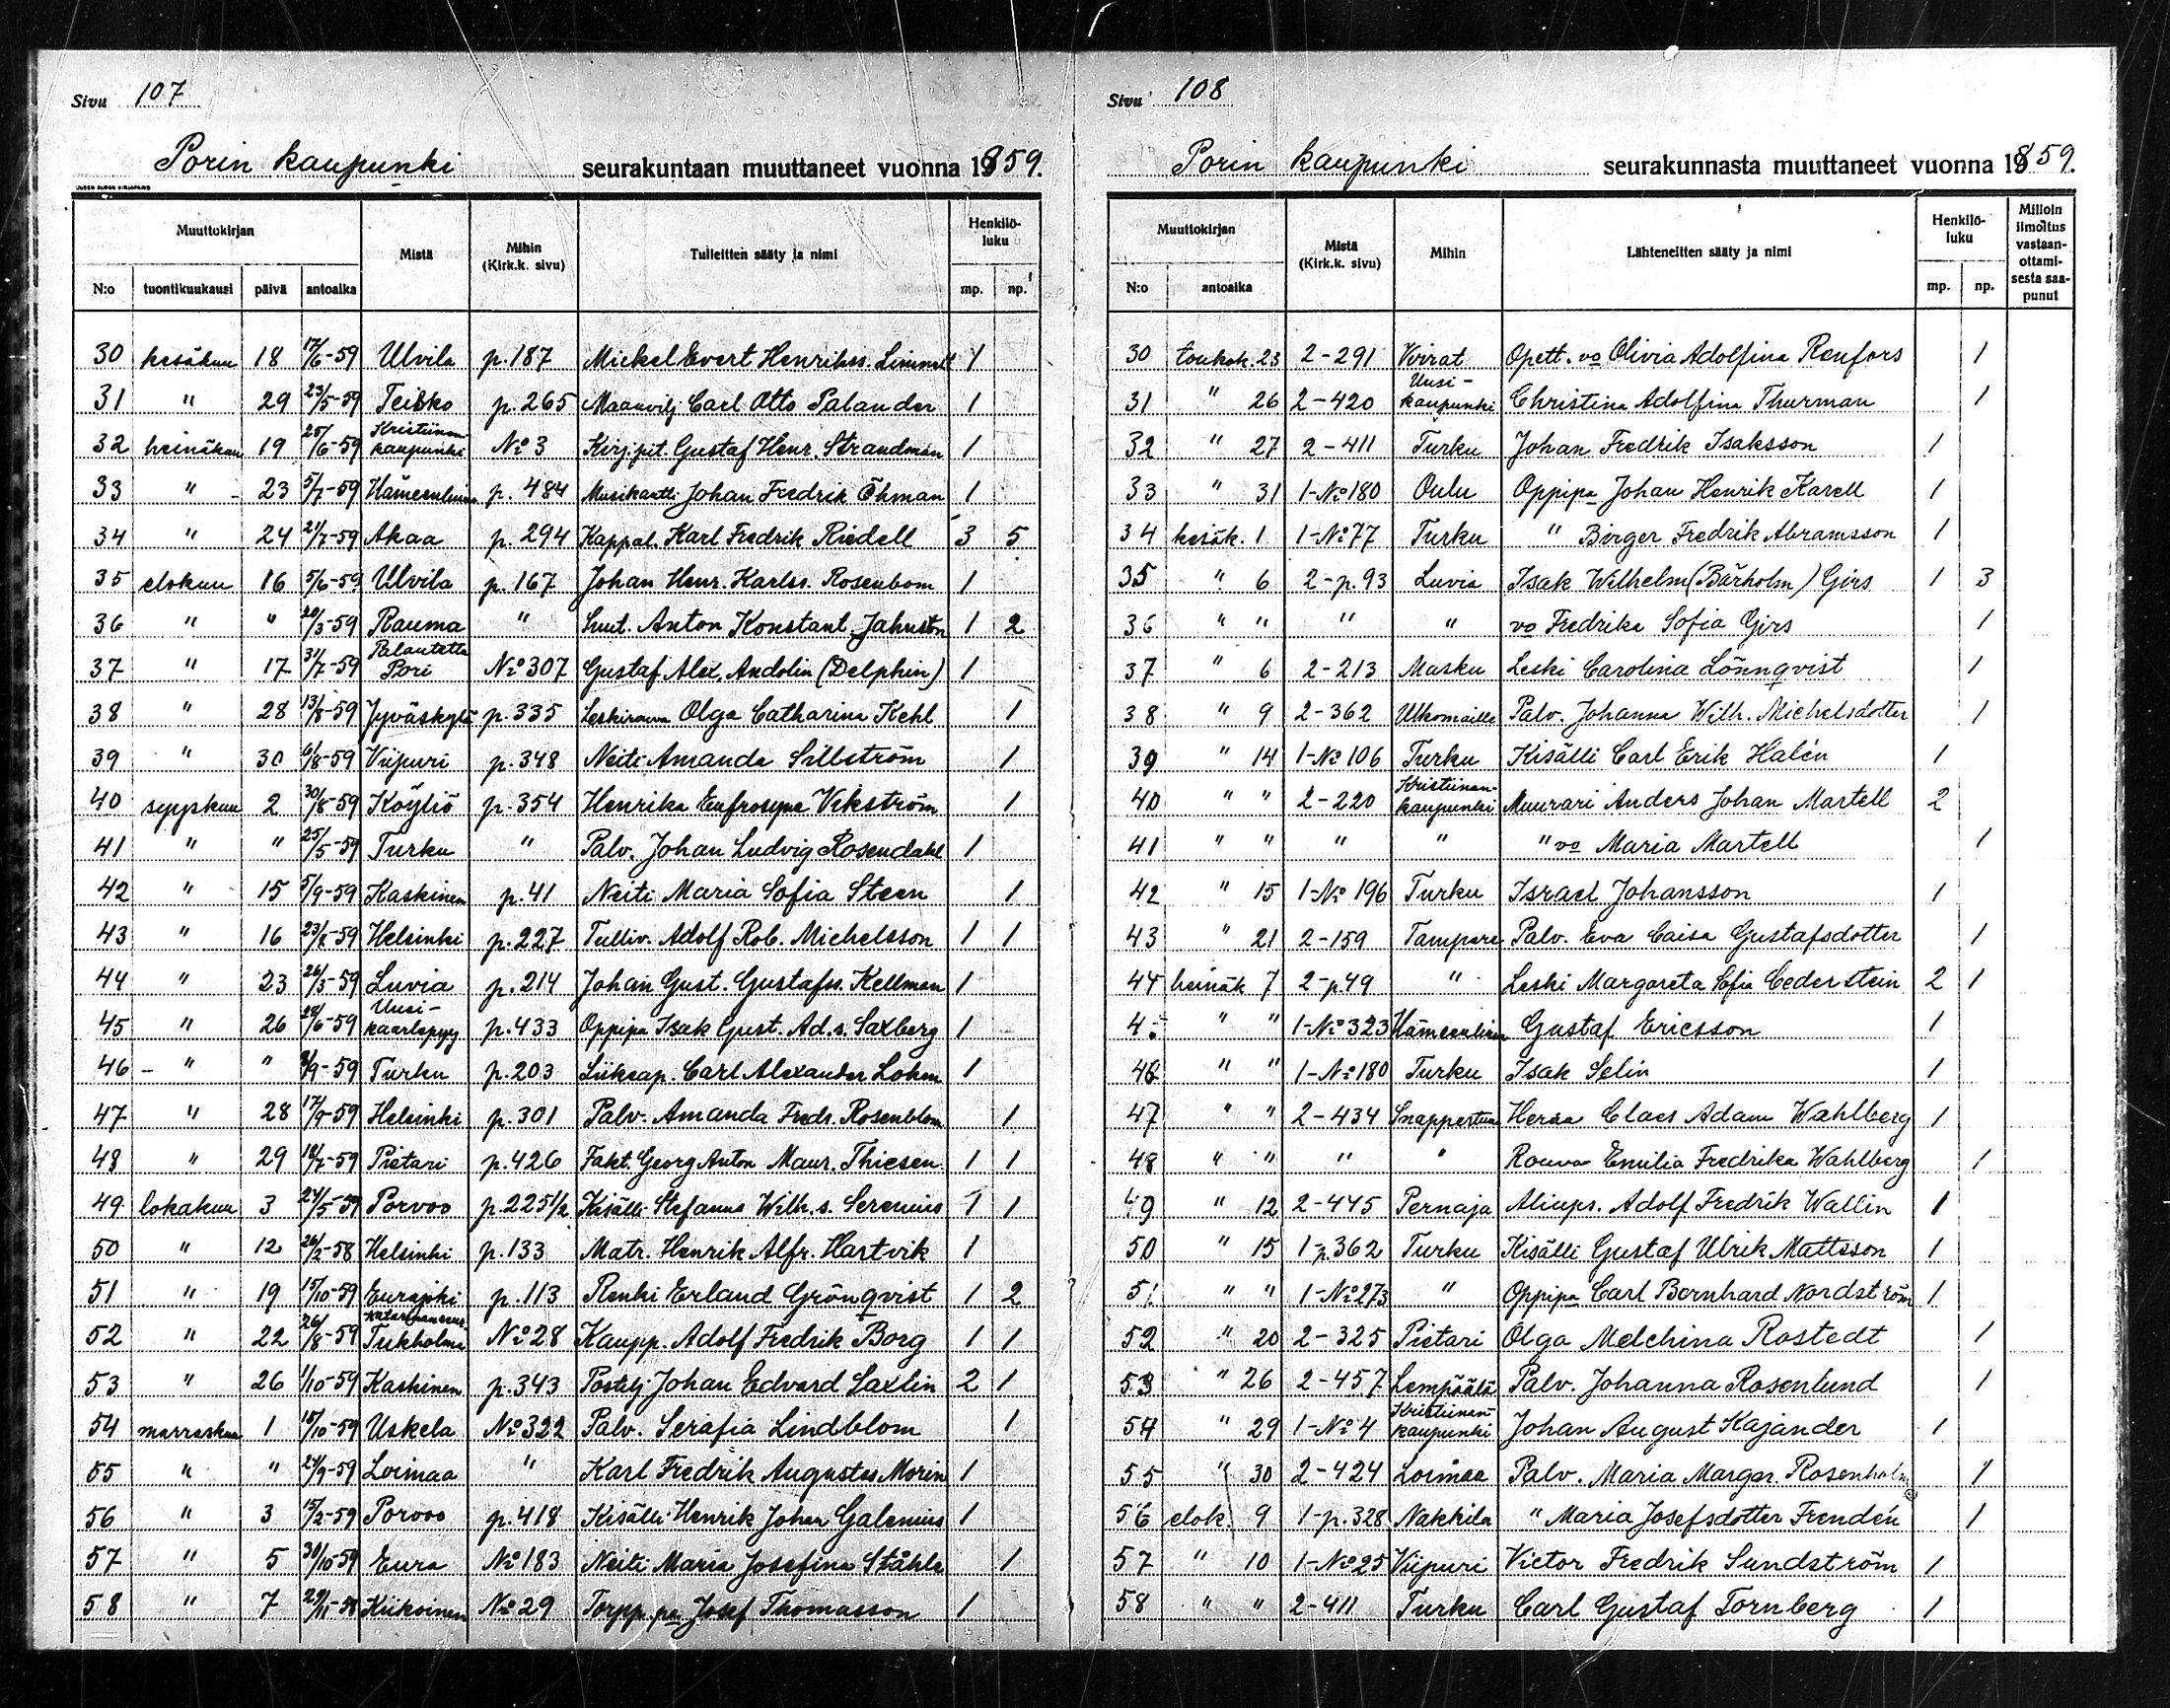 Sivu 107
Porin kaupunki seurakuntaan muuttaneet vuonna 1859.
UUDEN AURAN KIRJAPAINO
Muuttokirjan Mistä Mihin (Kirk.k. sivu) Tulleitten sääty ja nimi Henkilö-luku
N:o tuontikuukausi päivä antoaika mp. np.
30 kesäkuu 18 17/6-59 Ulvila p.187 Mickel Evert Henrikss. 1
31 " 29 23/5-59 Teisko p.265 Maanvilj Carl Otto Palander 1
32 heinäkuu 19 25/6-59 Kristiinankaupunki No 3 Kirj.pit. Gustaf Henr. Strandman 1
33 " 23 5/7-59 Hämeenlinna p.484 Musikantti Johan Fredrik Öhman 1
34 " 24 21/7-59 Akaa p.294 Kappal. Karl Fredrik Riedell 3 5
35 elokuu 16 5/6-59 Ulvila p.167 Johan Henr. Karlss. Rosenbom 1
36 " " 20/3-59 Rauma " Suut. Anton Konstant. Jahnston 1 2
37 " 17 31/7-59 Palautettu Pori No 307 Gustaf Alex. Andolin (Delphin) 1
38 " 28 13/8-59 Jyväskylä p.335 Leskirouva Olga Catharina Kehl 1
39 " 30 6/8-59 Viipuri p.348 Neiti Amanda Sillström 1
40 syyskuu 2 30/8-59 Köyliö p.354 Henrika Eufrosyna Vikström 1
41 " " 25/5-59 Turku " Palv. Johan Ludvig Rosendahl 1
42 " 15 5/9-59 Kaskinen p.41 Neiti Maria Sofia Steen 1
43 " 16 23/8-59 Helsinki p.227 Tulliv. Adolf Rob. Michelsson 1 1
44 " 23 26/3-59 Luvia p.214 Johan Gust. Gustafss. Kellman 1
45 " 26 28/6-59 Uusi-kaarlepyy p.433 Oppipa Isak Gust. Ad.s. Saxberg 1
46 - " " /9-59 Turku p.203 Liikeap. Carl Alexander Lohm 1
47 " 28 17/9-59 Helsinki p.301 Palv. Amanda Freds. Rosenblom 1
48 " 29 18/7-59 Pietari p.426 Fakt. Georg Anton Maur. Thiesen 1 1
49 lokakuu 3 24/5-59 Porvoo p.225 1/2 Kisälli Stefanus Wilh.s. Serenius 1 1
50 " 12 26/2-58 Helsinki p.133 Matr. Henrik Alfr. Hartvik 1
51 " 19 15/10-59 Eurajoki p.113 Renki Erland Grönqvist 1 2
52 " 22 26/8-59 Tukholma No 28 Kaupp. Adolf Fredrik Borg 1 1
53 " 26 1/10-59 Kaskinen p.343 Postilj Johan Edvard Saxlin 2 1
54 marraskuu 1 15/10-59 Uskela No 322 Palv. Serafia Lindblom 1
55 " " 24/9-59 Loimaa " Karl Fredrik Augustus Morin 1
56 " 3 15/2-59 Porvoo p.418 Kisälli Henrik Johan Galenius 1
57 " 5 30/10-59 Eura No 183 Neiti Maria Josefina Ståhle 1
58 " 7 Kiikoinen No 29 Torpp.pa Josef Thomasson 1
Sivu 108
Porin kaupunki seurakunnasta muuttaneet vuonna 1859.
Muuttokirjan Mistä (Kirk.k. sivu) Mihin Lähteneitten sääty ja nimi Henkilö-luku Milloin ilmoitus vastaan-ottami-sesta saa-punut
N:o antoaika mp. np.
30 toukok. 23 2-291 Virrat Opett. vo Olivia Adolfina Renfors 1
31 " 26 2-420 Uusi-kaupunki Christina Adolfina Thurman 1
32 " 27 2-411 Turku Johan Fredrik Isaksson 1
33 " 31 1-No 180 Oulu Oppipa Johan Henrik Karell 1
34 kesäk. 1 1-No 77 Turku " Birger Fredrik Abramsson 1
35 " 6 2-p.93 Luvia Isak Wilhelm (Bärholm) Girs 1 3
36 " " " " vo Fredrika Sofia Girs 1
37 " 6 2-213 Masku Leski Carolina Lönnqvist 1
38 " 9 2-362 Ulkomaille Palv. Johanna Wilh. Michelsdotter 1
39 " 14 1-No 106 Turku Kisälli Carl Erik Halén 1
40 " " 2-220 Kristiinan-kaupunki Muurari Anders Johan Martell 2
41 " " " " " vo Maria Martell 1
42 " 15 1-No 196 Turku Israel Johansson 1
43 " 21 2-159 Tampere Palv. Eva Caisa Gustafsdotter 1
44 heinäk 7 2-p.49 " Leski Margareta Sofia Cederstein 2 1
45 " " 1-No 323 Hämeenlinna Gustaf Ericsson 1
46 " " 1-No 180 Turku Isak Selin 1
47 " " 2-434 Snappertuna Herra Claes Adam Wahlberg 1
48 " " " " Rouva Emilia Fredrika Wahlberg 1
49 " 12 2-445 Pernaja Aliups. Adolf Fredrik Wallin 1
50 " 15 1-p.362 Turku Kisälli Gustaf Ulrik Mattsson 1
51 " " 1-No 273 " Oppipa Carl Bernhard Nordström 1
52 " 20 2-325 Pietari Olga Melchina Rostedt 1
53 " 26 2-457 Lempäälä Palv. Johanna Rosenlund 1
54 " 29 1-No 4 Kristiinan-kaupunki Johan August Kajander 1
55 " 30 2-424 Loimaa Palv. Maria Margar. Rosenholm 1
56 elok. 9 1-p.328 Nakkila " Maria Josefsdotter Frendén 1
57 " 10 1-No 25 Viipuri Victor Fredrik Sundström 1
58 " " 2-411 Turku Carl Gustaf Tornberg 1